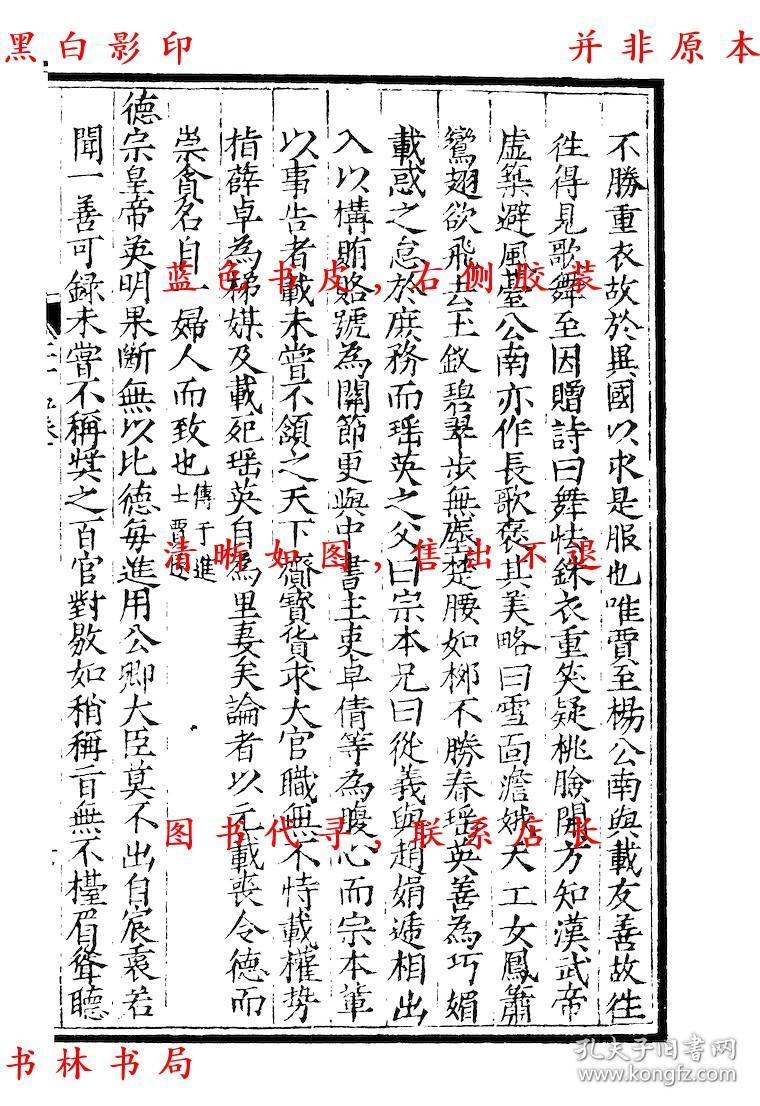 黑白影印
并非原本
不勝重衣故於異國以求是服也唯賈至楊公南與載友善故徃
徃得見歌舞至因贈詩曰舞怯銖衣重笑疑桃臉開方知漢武帝
虛築避風臺公南亦作長歌褒其美略曰雪面澹娥天上女鳳簫
鸞翅欲飛去玉釵碧翠步無塵楚腰如栁不勝春瑶英善為巧媚
載惑之怠於庶務而瑶英之父曰宗本兄曰從義與趙娟遞相出
入以構賄賂號為關節更與中書主吏卓倩等為腹心而宗本軰
以事告者載未嘗不頷之天下齎寳貨求大官職無不恃載權勢
指薛卓為梯媒及載死瑶英自為里妻矣論者以元載喪令德而
崇貪名自一婦人而致也
傳于進
士賈
德宗皇帝英明果斷無以比德每進用公卿大臣莫不出自宸衷若
聞一善可録未嘗不稱奬之百官對敭如稍稱旨無不擡眉聳聽
蓝色书皮，右侧胶装
清晰如图，售出不退
图书代寻，联系店长
书林书局
孔夫子旧书网
www.kongfz.com